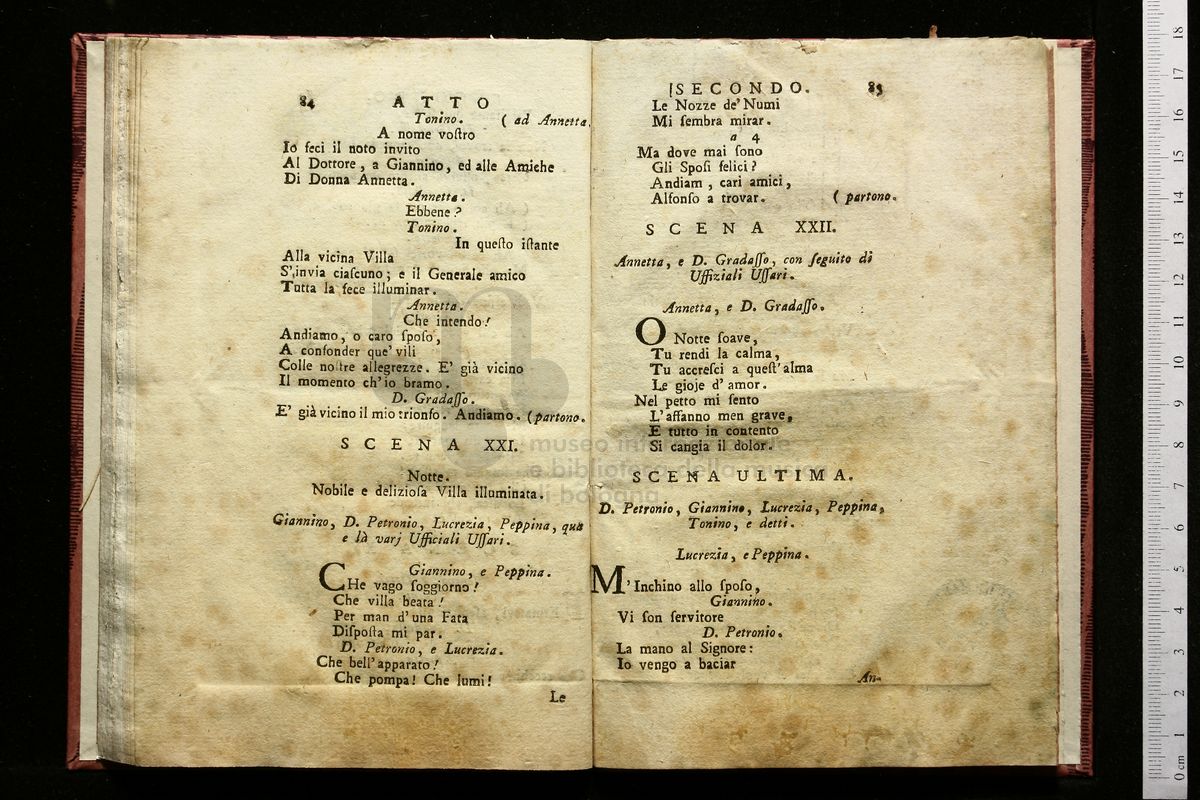 84 ATTO
Tonino. ( ad Annetta.
A nome voſtro
Io feci il noto invito
Al Dottore, a Giannino, ed alle Amiche
Di Donna Annetta.
Annetta.
Ebbene?
Tonino.
In queſto iſtante
Alla vicina Villa
S'invia ciaſcuno; e il Generale amico
Tutta la fece illuminar.
Annetta.
Che intendo!
Andiamo, o caro ſpoſo,
A confonder que' vili
Colle noſtre allegrezze. E' già vicino
Il momento ch'io bramo.
D. Gradaſſo.
E' già vicino il mio trionfo. Andiamo. (partono.
SCENA XXI.
Notte.
Nobile e delizioſa Villa illuminata.
Giannino, D. Petronio, Lucrezia, Peppina, quà
e là varj Ufficiali Uſſari.
Giannino, e Peppina.
CHe vago ſoggiorno!
Che villa beata!
Per man d'una Fata
Diſpoſta mi par.
D. Petronio, e Lucrezia.
Che bell'apparato!
Che pompa! Che lumi!
Le
SECONDO. 85
Le Nozze de' Numi
Mi ſembra mirar.
a 4
Ma dove mai ſono
Gli Spoſi felici?
Andiam, cari amici,
Alfonſo a trovar. ( partono.
SCENA XXII.
Annetta, e D. Gradaſſo, con ſeguito di
Uffiziali Uſſari.
Annetta, e D. Gradaſſo.
O Notte ſoave,
Tu rendi la calma,
Tu accreſci a queſt'alma
Le gioje d'amor.
Nel petto mi ſento
L'affanno men grave,
E tutto in contento
Si cangia il dolor.
SCENA ULTIMA.
D. Petronio, Giannino, Lucrezia, Peppina,
Tonino, e detti.
Lucrezia, e Peppina.
M'Inchino allo ſpoſo,
Giannino.
Vi ſon ſervitore
D. Petronio.
La mano al Signore:
Io vengo a baciar
An-
museo
e biblioteca della musica
di bologna
0 cm 1 2 3 4 5 6 7 8 9 10 11 12 13 14 15 16 17 18